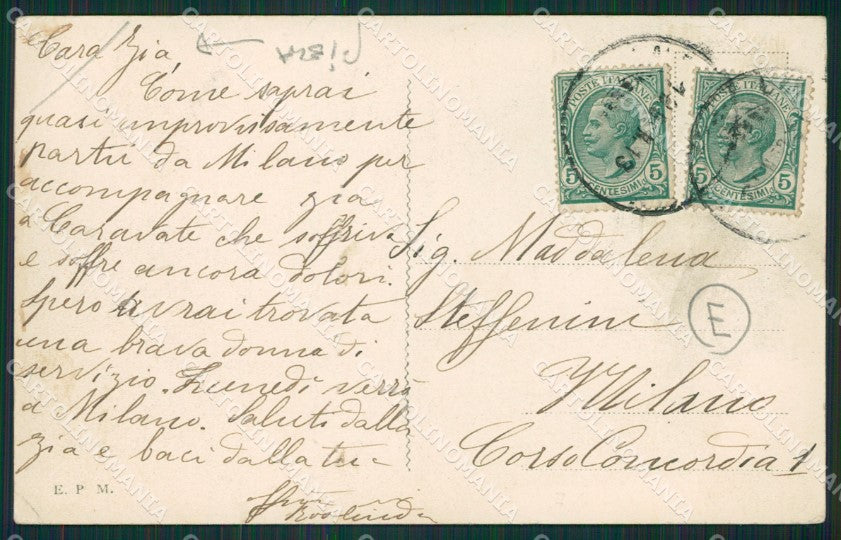 Cara Zia
Come saprai
quasi improvvisamente
partii da Milano per
accompagnare zia
a Caravate che soffriva
e soffre ancora dolori.
Spero avrai trovata
una brava donna di
servizio. Lunedì verrò
a Milano. Saluti dalla
zia e baci dalla tu-
Rosalinda
E. P. M.
POSTE ITALIANE
5 5
CENTESIMI
POSTE ITALIANE
5 5
CENTESIMI
Sig. Maddalena
Steffenini
E
Milano
Corso Concordia 1
CARTOLINOMANIA